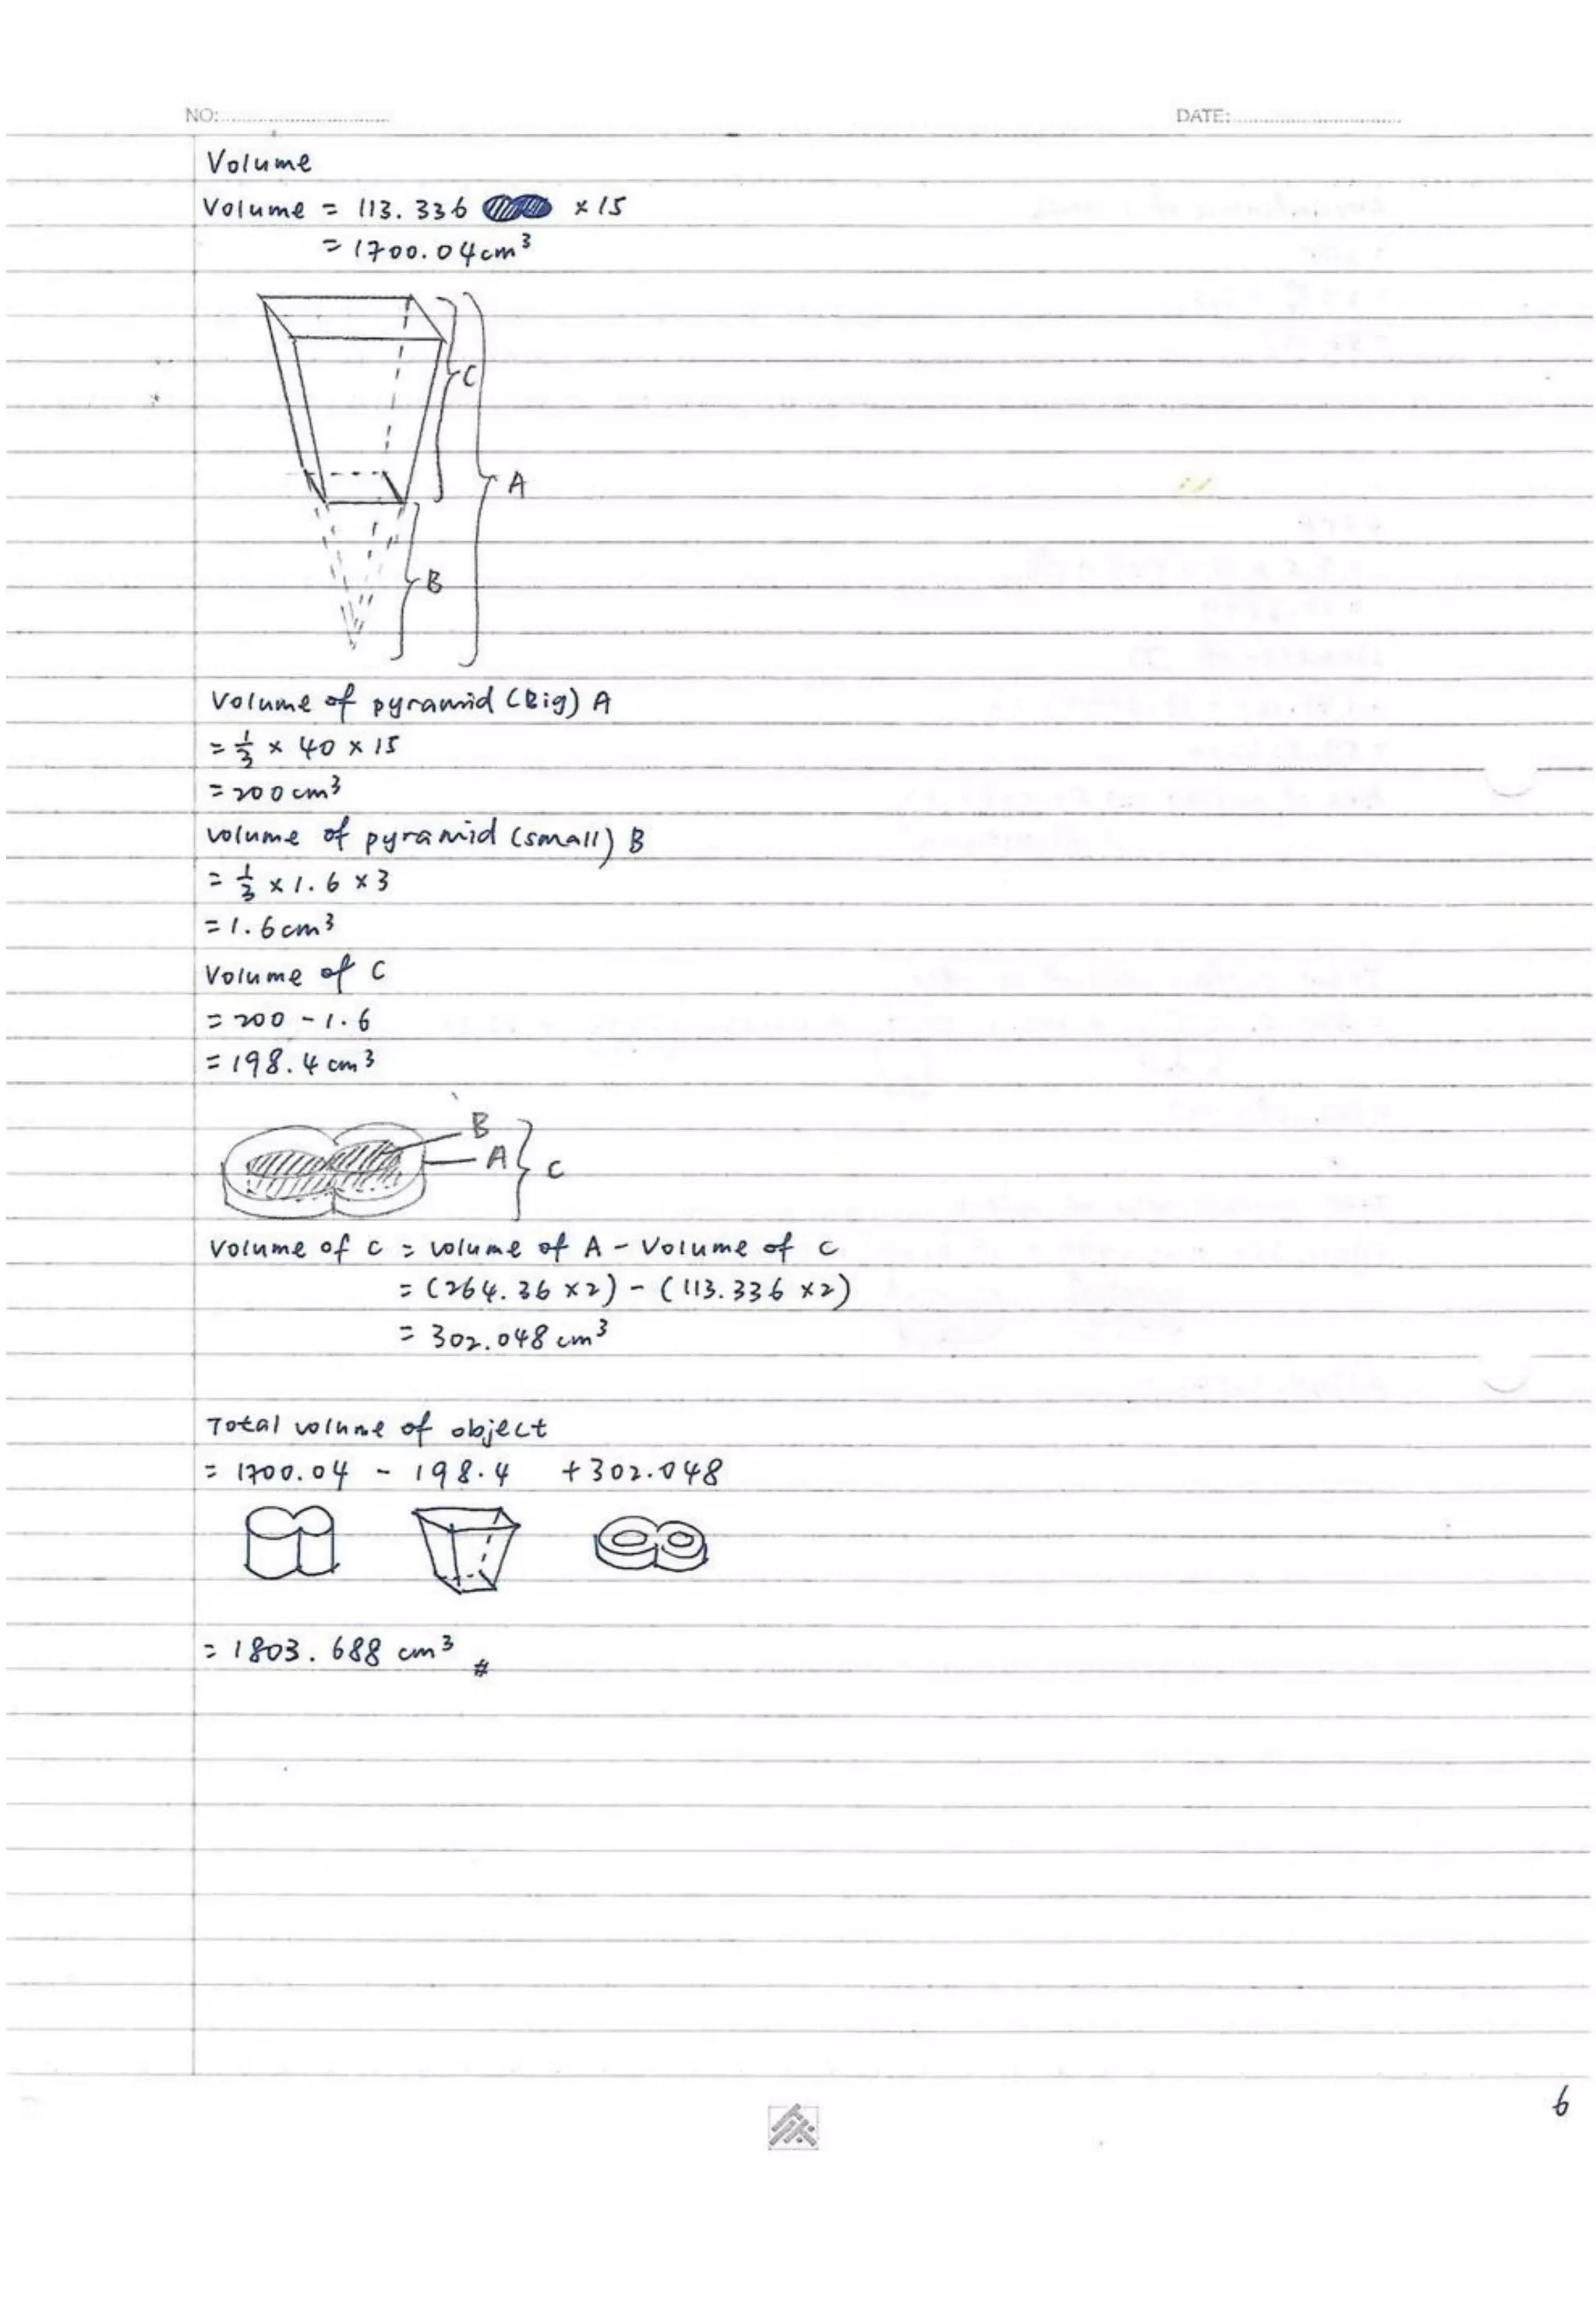 NO:
DATE:
Volume
Volume = 113.336 × 15
= 1700.04cm³
C
A
B
Volume of pyramid (Big) A
= 1/3 × 40 × 15
= 200cm³
volume of pyramid (small) B
= 1/3 × 1.6 × 3
= 1.6cm³
Volume of C
= 200 - 1.6
= 198.4 cm³
B
A
C
Volume of C = volume of A - Volume of C
= (264.36 ×2) - (113.336 ×2)
= 302.048 cm³
Total volume of object
= 1700.04 - 198.4 +302.048
= 1803.688 cm³ #
6